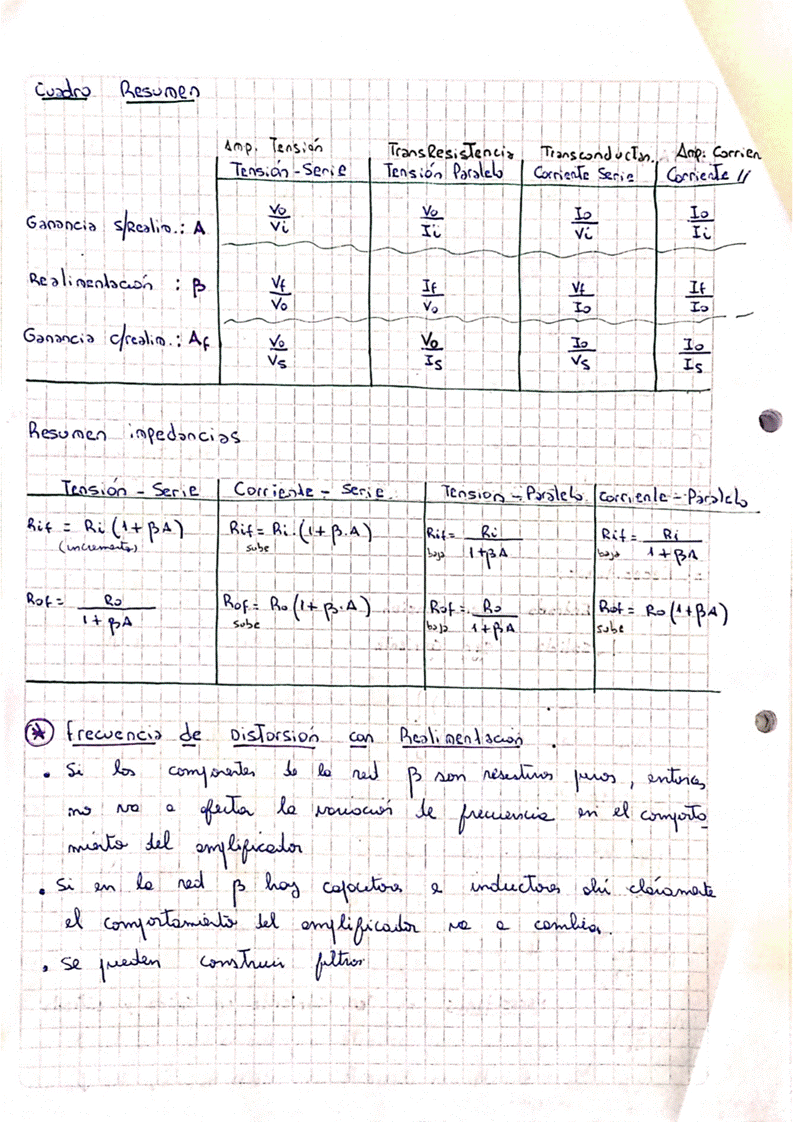 Cuadro Resumen
Amp. Tensión TransResistencia Transconductan. Amp. Corrien
Tensión-Serie Tensión Paralelo Corriente Serie Corriente //
Ganancia s/Realim.: A Vo/Vi Vo/Ii Io/Vi Io/Ii
Realimentación : β Vf/Vo If/Vo Vf/Io If/Io
Ganancia c/realim.: Af Vo/Vs Vo/Is Io/Vs Io/Is
Resumen impedancias
Tensión - Serie Corriente - Serie. Tension - Paralelo corriente - Paralelo
Rif = Ri (1+βA) Rif = Ri.(1+β.A) Rif = Ri/1+βA Rif = Ri/1+βA
(incremento) sube baja baja
Rof = Ro/1+βA Rof = Ro(1+β.A) Rof = Ro/1+βA Rof = Ro(1+βA)
sube baja sube
* Frecuencia de Distorsión con Realimentación.
• Si los componentes de la red β son resistivos puros, entonces
no va a afectar la variación de frecuencia en el comporta-
miento del amplificador
• Si en la red β hay capacitores e inductores ahí claramente
el comportamiento del amplificador va a cambiar.
• Se pueden construir filtros